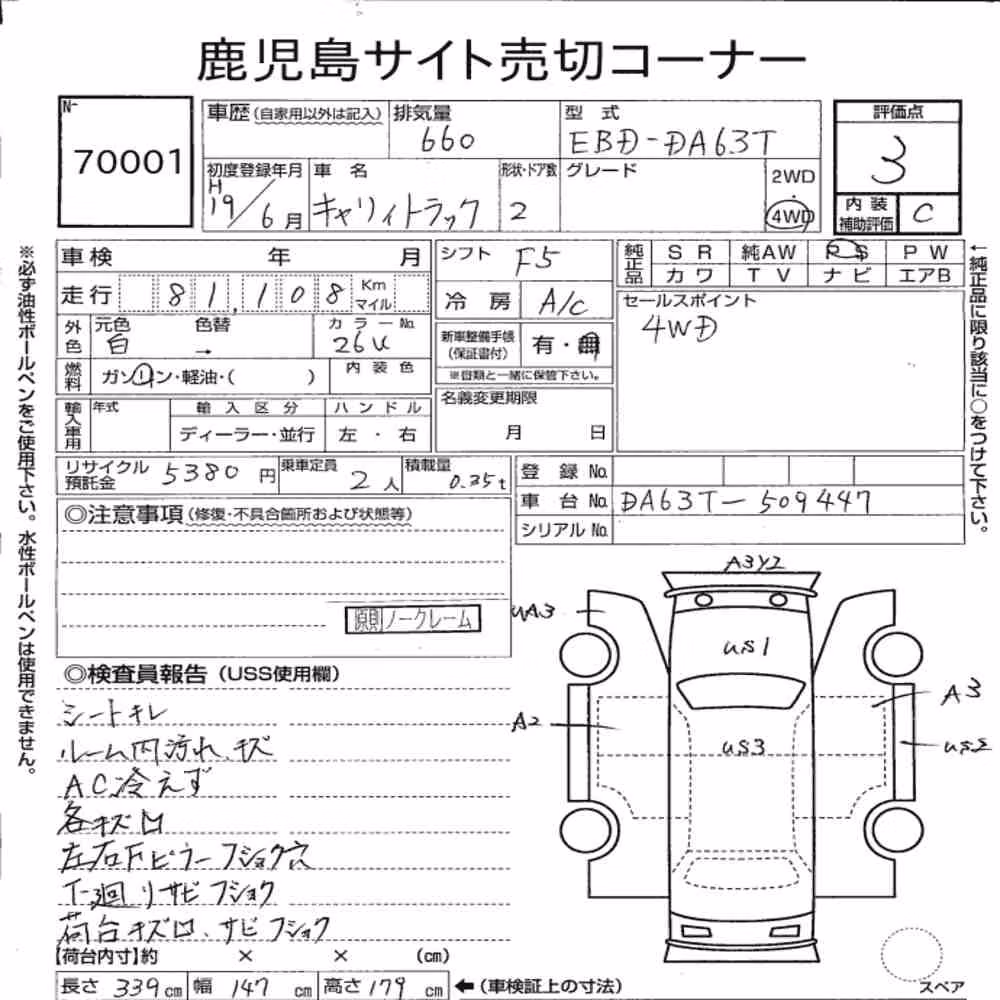 鹿児島サイト売切コーナー
N-
70001
車歴 (自家用以外は記入)
排気量
660
型式
EBD-DA63T
評価点
3
初度登録年月
H
19/6月
車名
キャリィトラック
形状・ドア数
2
グレード
2WD
・
4WD
内装
補助評価
C
車検 年 月
走行 81,108 Km
マイル
外色
元色 色替
白 →
カラーNo.
26U
燃料
ガソリン・軽油・( )
内装色
輸入車用
年式
輸入区分
ハンドル
ディーラー・並行
左・右
シフト F5
冷房 A/C
新車整備手帳
(保証書付)
有・無
※書類と一緒に保管下さい。
名義変更期限
月 日
純正品
SR 純AW PS PW
カワ TV ナビ エアB
セールスポイント
4WD
←純正品に限り該当に○をつけて下さい。
※必ず油性ボールペンをご使用下さい。水性ボールペンは使用できません。
リサイクル
預託金
5380 円
乗車定員
2 人
積載量
0.35t
登録No.
車台No. DA63T-509447
シリアルNo.
◎注意事項(修復・不具合箇所および状態等)
ノークレーム
◎検査員報告(USS使用欄)
シートキレ
ルーム内汚れ、キズ
AC冷えず
各キズ凹
左右下ピラーフショク穴
下廻りサビフショク
荷台キズ凹、サビフショク
【荷台内寸】約 × × (cm)
長さ 339cm 幅 147cm 高さ 179cm ←(車検証上の寸法)
A3Y2
UA3
US1
A3
A2
US3
US2
スペア